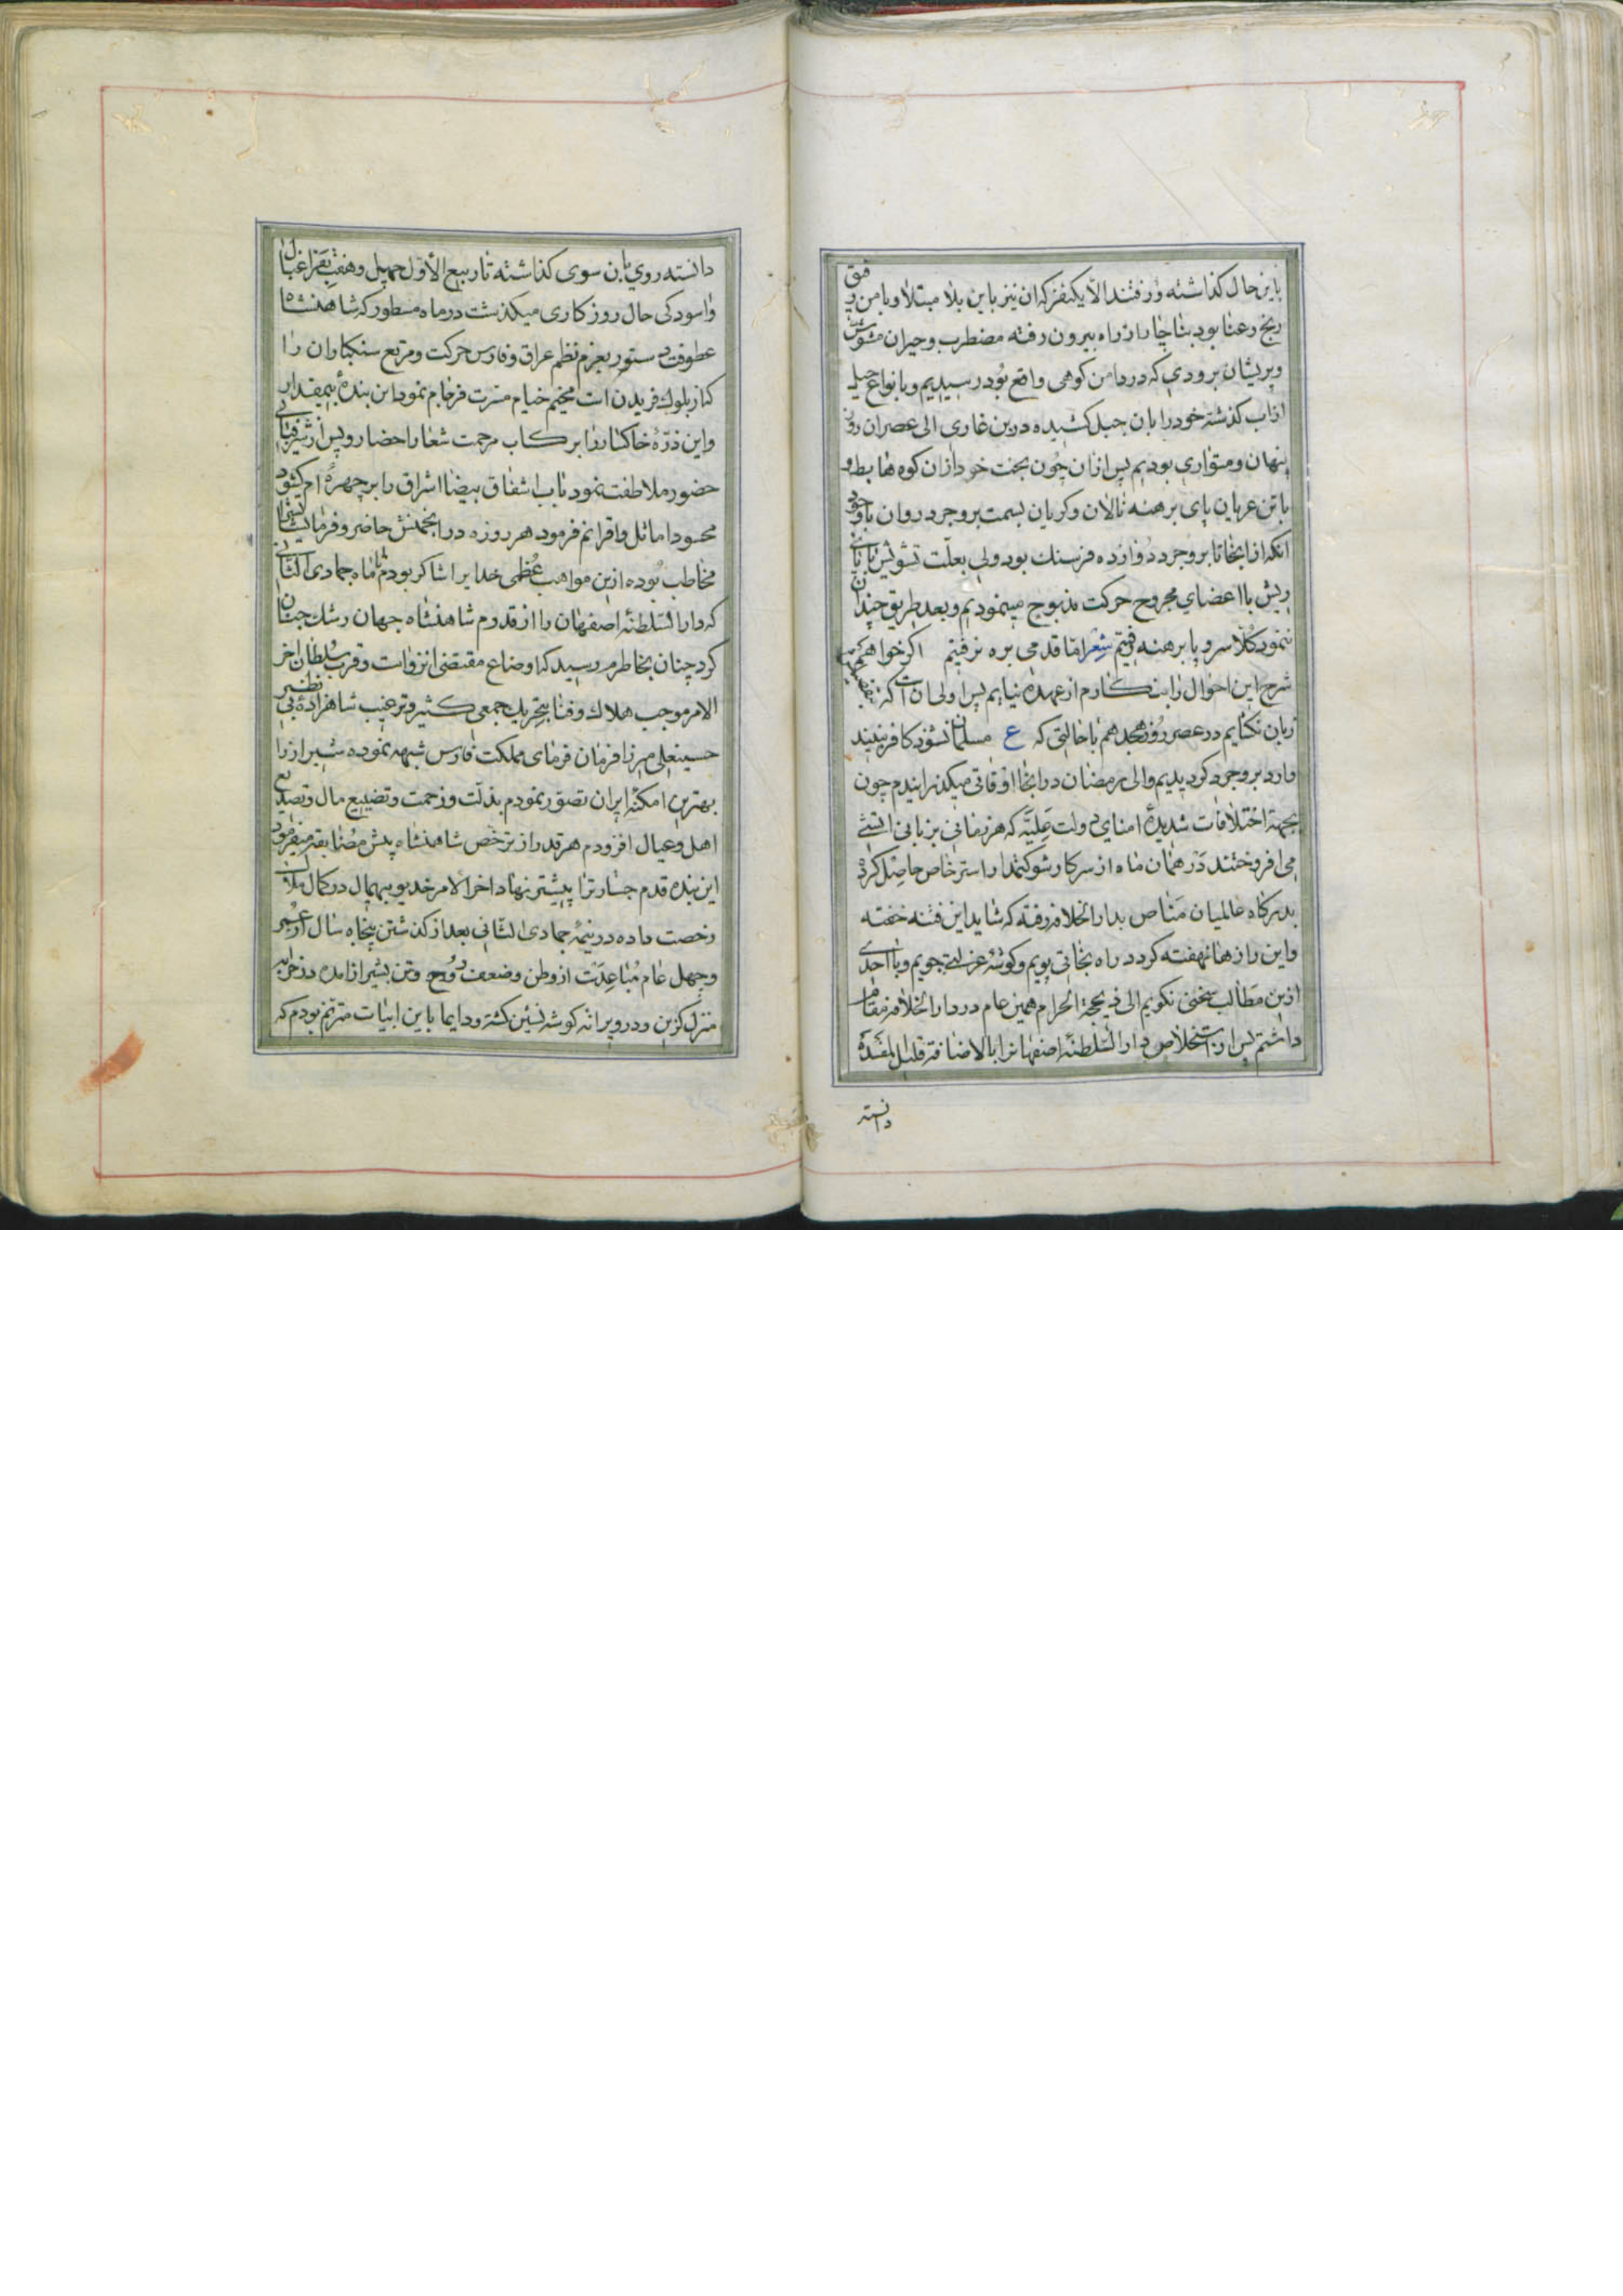 باین حال کذاشته و رفتند الا یکنفر که ان نیز باین بلا مبتلا و با من رفیق
رنج و عنا بود بناچار از راه بیرون رفته مضطرب و حیران مشوش
و پریشان برودی که در دامن کوهی واقع بود رسیدیم و بانواع حیل
از اب کذشته خود را بان جبل کشیده در بن غاری الی عصر ان روز
پنهان و متواری بودیم پس از ان چون بخت خود از ان کوه هابط و
با تن عریان پای برهنه نالان و کریان بسمت بروجرد روان با وجود
انکه از انجا تا بروجرد دوازده فرسنك بود ولی بعلت تشویش با پای
ریش با اعضای مجروح حرکت مذبوح مینمودیم و بعد طریق چندان
ننمود کلا سر و پا برهنه رفتیم شعر اما قدمی بره نرفتیم اکر خواهم
شرح این احوال را بنکارم از عهده نیایم پس اولی ان است که
زبان نکشایم در عصر روز هجدهم با حالتی که ع مسلمان نشنود کافر نبیند
وارد بروجرد کردیدیم و الی رمضان در انجا اوقاتی میکذرانیدم چون
بجهة اختلافات شدیدۀ امنای دولت علیّه که هر زمانی بزبانی اتشی
می افروختند در همان ماه از سرکار شوکتمدار استرخاص حاصل کرده
بدرکاه عالمیان مناص بدار الخلافه رفته که شاید این فتنه خفته
و این راز ها نهفته کردد راه نجاتی پویم و کوشۀ عزلتی جویم و با احدی
ازین مطالب سخنی نکویم الی ذیحجة الحرام همین عام در دار الخلافه مقام
داشتم پس از استخلاص دار السّلطنۀ اصفهانرا بالاضافه قلیل المفسده
دانسته
دانسته روی بان سوی کذاشته تا ربیع الاوّل چهل و هفت بفراغبال
و اسودکی حال روزکاری میکذشت در ماه مسطور که شاهنشاه
عطوفت دستور بعزم نظم عراق و فارس حرکت و مرتع سنکباران را
کنار بلوك فریدن است مخیّم خیام مسرت فرجام نمود این بندۀ بیمقدار
و این ذرّۀ خاکسار را برکاب مرحمت شعار احضار و پس از شرفیابی
حضور ملاطفت نمود تاب اشفاق بیضا اشراق را بر چهرۀ ام کشود
محسود اماثل و اقرانم فرمود هر روزه در انجمنش حاضر و فرمایشاتشرا
مخاطب بوده ازین مواهب عُظمی خدایرا شاکر بودم تا ماه جمادی الثانی
که دار السّلطنۀ اصفهان را از قدوم شاهنشاه جهان رشك جنان
کرد چنان بخاطرم رسید که اوضاع مقتضی انزواست و قرب سلطان اخر
الامر موجب هلاك و فنا بتحریك جمعی کثیر و ترغیب شاهزادۀ بی نظیر
حسینعلی میرزا فرمان فرمای مملکت فارس شبهه نموده شیراز را
بهترین امکنۀ ایران تصوّر نمودم بذلّت و زحمت و تضییع مال و تصدیع
اهل و عیال افزودم هر قدر از ترخّص شاهنشاه پیش مضایقه میفرمود
این بنده قدم جسارترا پیشتر نهاد اخر الامر خدیو بیهمال در کمال ملال
رخصت داده در نیمۀ جمادی الثّانی بعد از کذشتن پنجاه سال از عمر
و چهل عام مُباعِدَت از وطن و ضعف روح و تن بشیراز امده در خرابه
منزل کزین و در ویرانه کوشه نشین کشته و دایما باین ابیات مترنّم بودم که